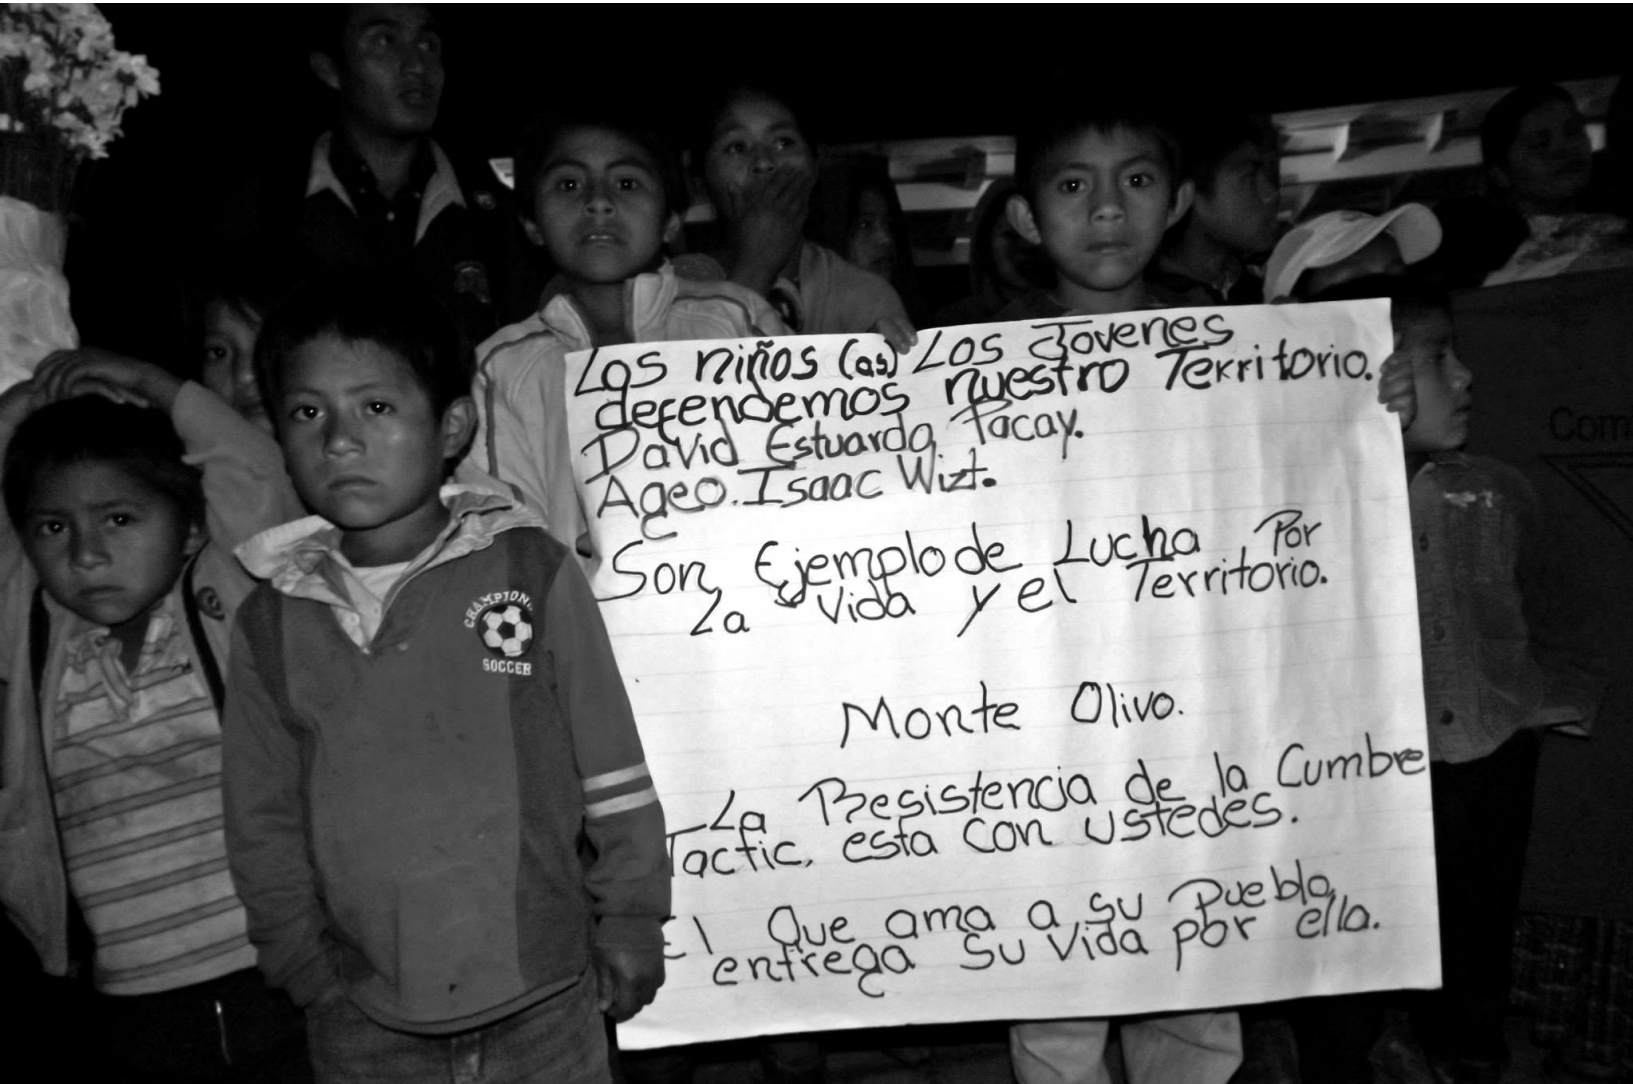 Los niños (as) Los Jovenes
defendemos nuestro Territorio.
David Estuardo Pacay.
Ageo. Isaac Wizt.
Son Ejemplo de Lucha Por
La Vida y el Territorio.
Monte Olivo.
La Resistencia de la Cumbre
Tactic, esta con ustedes.
El Que ama a su Pueblo,
entrega su Vida por ella.
CHAMPIONS
SOCCER
Com